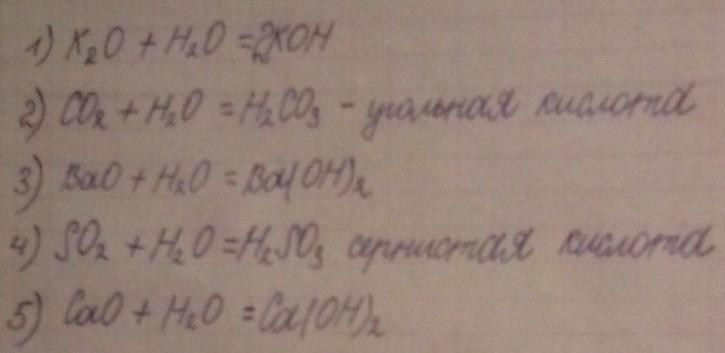 1) K₂O + H₂O = 2KOH
2) CO₂ + H₂O = H₂CO₃ - угольная кислота
3) BaO + H₂O = Ba(OH)₂
4) SO₂ + H₂O = H₂SO₃ сернистая кислота
5) CaO + H₂O = Ca(OH)₂